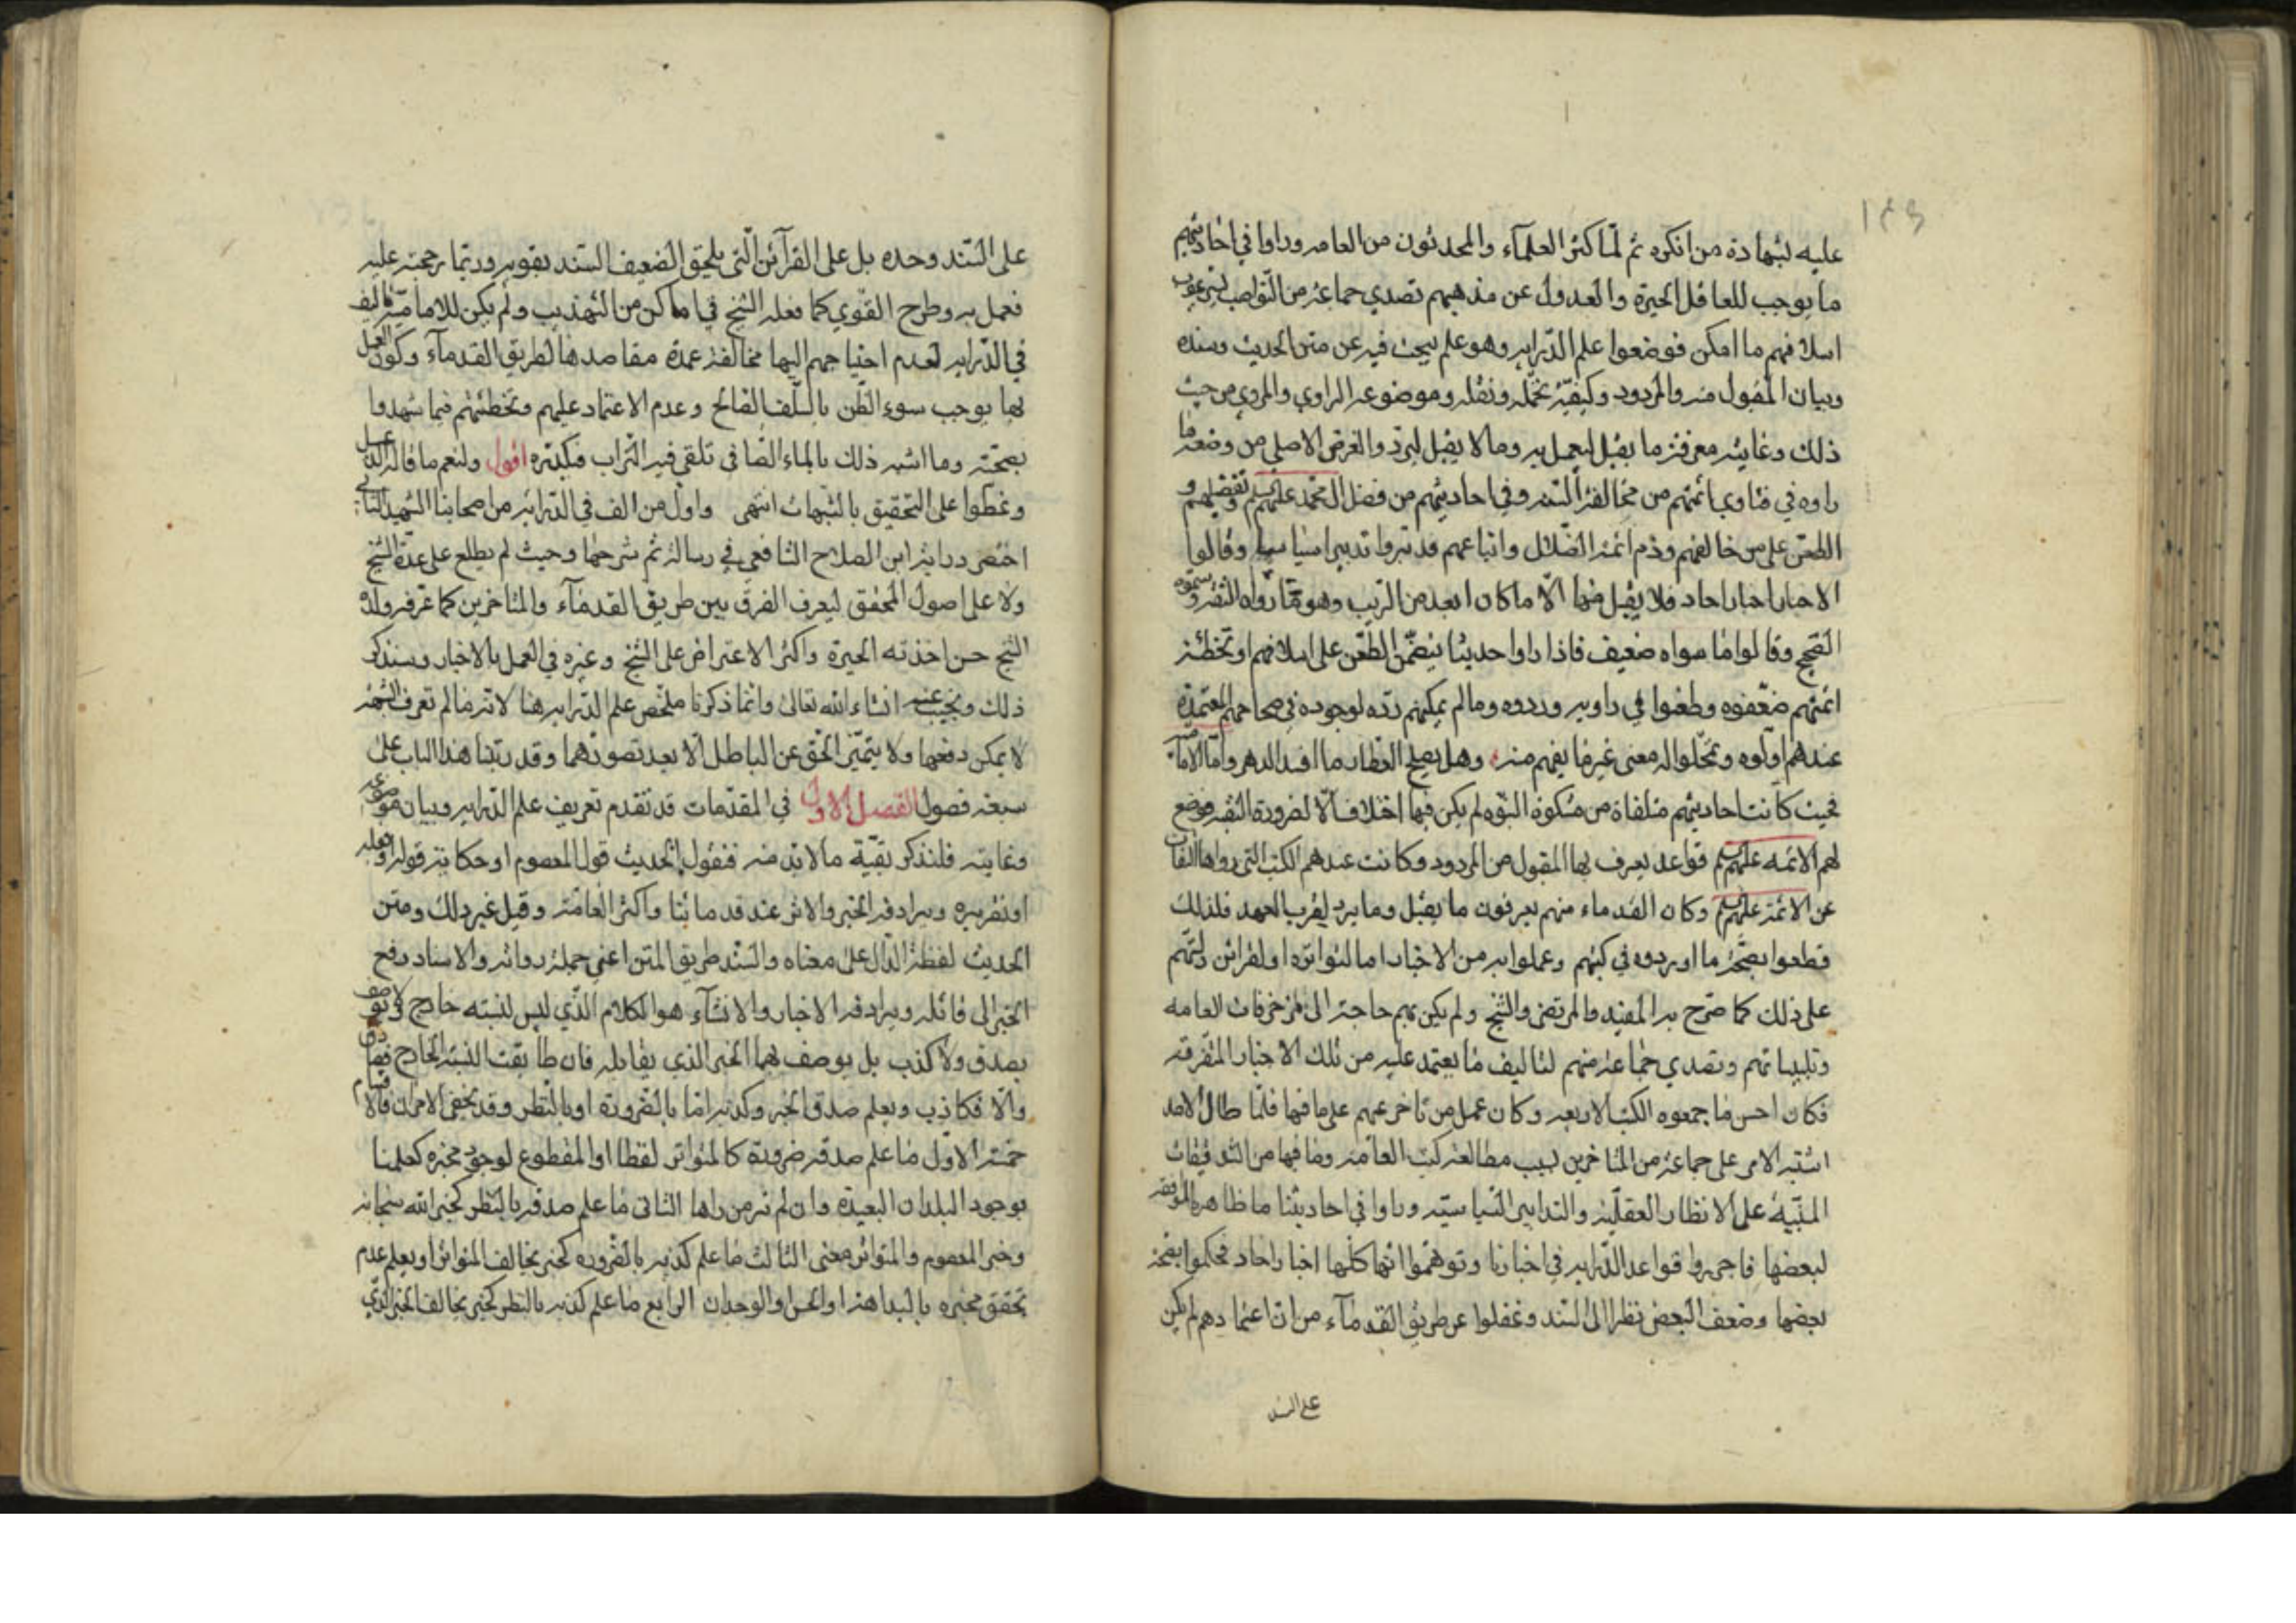 ١٣٩
عليه بشهادة من انكره ثم لما كثر العلمآء والمحدثون من العامه وراوا في احاديثهم
ما يوجب للعاقل الحيرة والعدول عن مذهبهم تصدي جماعة من النواصب
اسلافهم ما امكن فوضعوا علم الدّرايه وهو علم يبحث فيه عن متن الحديث وسنده
وبيان المقبول منه والمردود وكيفيّة تحمّله ونقله وموضوعه الراوي والمروي من حيث
ذلك وغايته معرفة ما يقبل ليعمل به وما لا يقبل ليردّ والغرض الاصلي من وضعه ما
راوه في فتاوي ائمتهم من مخالفة السّنه وفي احاديثهم من فضل ال محمد عليهم السلم وتفضيلهم و
الطعن على من خالفهم وذم ائمة الضّلال واتباعهم فدبّروا تدبيرا سياسيا وقالوا
الاخبار اخبار احاد فلا يقبل منها الّا ما كان ابعد من الريب وهو ممّا رواه الثقة وسموه
الصّحيح وقالوا ما سواه ضعيف فاذا راوا حديثا يتضمّن الطّعن على اسلافهم او تخطئة
ائمتهم ضعّفوه وطعنوا في راويه وردوه وما لم يمكنهم ردّه لوجوده في صحاحهم المعتمدة
عندهم اوّلوه وتمحّلوا له معنى غير ما يفهم منه وهل يصلح العطار ما افسد الدهر وامّا الاماميّه
فحيث كانت احاديثهم متلقاة من مشكوة النبّوه لم يكن فيها اختلاف الّا لضرورة التقيه ووضع
لهم الائمه عليهم السلم قواعد يعرف بها المقبول من المردود وكانت عندهم الكتب التي رواها الثقات
عن الائمة عليهم السلم وكان القدماء منهم يعرفون ما يقبل وما يرد لقرب العهد فلذلك
قطعوا بصّحة ما اوردوه في كتبهم وعملوا به من الاخبار اما لتواتره او لقرائن دلّتهم
على ذلك كما صّرح به المفيد والمرتضى والشيخ ولم يكن بهم حاجة الى مزخرفات العامه
وتلبيساتهم وتصدي جماعة منهم لتاليف ما يعتمد عليه من تلك الاخبار المتفرقه
فكان احسن ما جمعوه الكتب الاربعه وكان عمل من تاخر عنهم على ما فيها فلمّا طال الامد
اشتبه الامر على جماعة من المتاخرين بسبب مطالعة كتب العامّة وما فيها من التدقيقات
المبنّية على الانظار العقليّة والتدابير السّياسيّه وراوا في احاديثنا ما ظاهره الموافقه
لبعضها فاجروا قواعد الدّرايه في اخبارنا وتوهّموا انّها كلها اخبار احاد فحكموا بصّحة
بعضها وضعف البعض نظرا الى السّند وغفلوا عن طريق القدمآء من ان اعتمادهم لم يكن
على السند
على السّند وحده بل على القرآئن الّتي يلحق الضعيف السّند بقويه وربّما رجحته عليه
فعمل به وطرح القّوي كما فعله الشيخ في اماكن من التهذيب ولم يكن للاماميّة تاليف
في الدّرايه لعدم احتياجهم اليها مخالفة عمدة مقاصدها لطريق القدمآء وكون العمل
بها يوجب سوء الظّن بالسّلف الصالح وعدم الاعتماد عليهم وتخطئتهم فيما شهدوا
بصحّته وما اشبه ذلك بالماء الصّافي تلقي فيه التّراب فيكدّره اقول ولنعم ما قال
وغطوا على التحقيق بالشّبهات انتهى واول من الف في الدّراية من اصحابنا الشّهيد الثاني
اختصر دراية ابن الصلاح الشافعي في رسالة ثم شرحها وحيث لم يطلع على عدة الشّيخ
ولا على اصول المحقق ليعرف الفرق بين طريق القدمآء والمتاخرين كما عرفه ولده
الشّيخ حسن اخذته الحيرة واكثر الاعتراض على الشّيخ وغيره في العمل بالاخبار وسنذكر
ذلك ونجيب عنه انشاء الله تعالى وانّما ذكرنا ملخّص علم الدّرايه هنا لانّه ما لم تعرف الشّبهة
لا يمكن دفعها ولا يتميّز الحق عن الباطل الّا بعد تصوّرهما وقد رتبنا هذا الباب على
سبعة فصول الفصل الاول في المقدّمات قد تقدم تعريف علم الدّرايه وبيان موضوعه
وغايته فلنذكر بقيّة ما لا بدّ منه فنقول الحديث قول المعصوم او حكاية قوله او فعله
او تقريره ويرادفه الخبر والاثر عند قدمائنا واكثر العامّة وقيل غير ذلك ومتن
الحديث لفظه الدّال على معناه والسّند طريق المتن اعني جملة رواته والاسناد رفع
الخبر الى قائله ويرادفه الاخبار والانشآء هو الكلام الّذي ليس لنسبته خارج لا يوصف
بصدق ولا كذب بل يوصف بهما الخبر الذي يقابله فان طابقت النسبة الخارج فصادق
والّا فكاذب ويعلم صدق الخبر وكذبه امّا بالضّرورة او بالنّظر وقد يخفى الامران فالاقسام
خمسة الاوّل ما علم صدقه ضرورة كالمتواتر لفظا او المقطوع لوجود مخبره كعلمنا
بوجود البلدان البعيدة وان لم نر من راها الثاني ما علم صدقه بالنظر كخبر الله سبحانه
وخبر المعصوم والمتواتر معنى الثالث ما علم كذبه بالضّروره كخبر يخالف المتواتر او يعلم عدم
تحقق مخبره بالبداهة او الحس او الوجدان الرابع ما علم كذبه بالنظر كخبر يخالف الخبر الذي